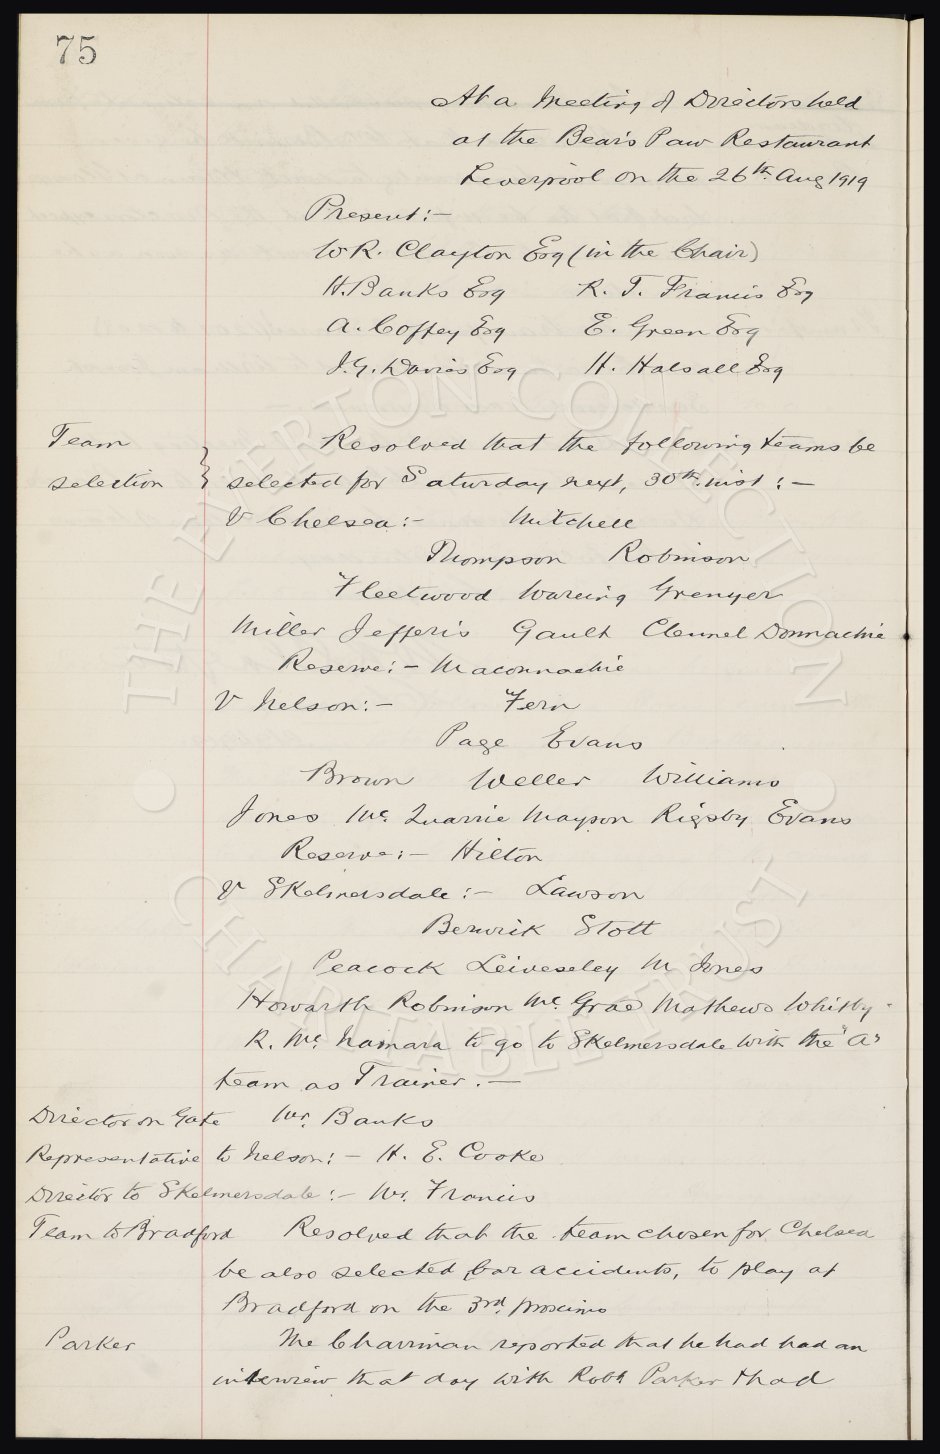 75
At a Meeting of Directors held
at the Bear's Paw Restaurant
Liverpool on the 26th. Aug 1919
Present:-
W.R. Clayton Esq (in the Chair)
H. Banks Esq R. T. Francis Esq
A. Coffey Esq E. Green Esq
J.G. Davies Esq H. Halsall Esq
Team Resolved that the following teams be
selection } selected for Saturday next, 30th. inst :-
V Chelsea:- Mitchell
Thompson Robinson
Fleetwood Wareing Grenyer
Miller Jefferis Gault Clennel Donnachie
Reserve:- Maconnachie
V Nelson:- Fern
Page Evans
Brown Weller Williams
Jones Mc. Quarrie Mayson Rigsby Evans
Reserve:- Hilton
V Skelmersdale:- Lawson
Berwick Stott
Peacock Leiveseley M Jones
Howarth Robinson Mc. Grae Mathews Whitby
R. Mc. Namara to go to Skelmersdale with the "A"
team as Trainer.-
Director on Gate Mr. Banks
Representative to Nelson:- H. E. Cooke
Director to Skelmersdale:- Mr. Francis
Team to Bradford Resolved that the team chosen for Chelsea
be also selected, bar accidents, to play at
Bradford on the 3rd. proximo
Parker The Chairman reported that he had had an
interview that day with Robt Parker & had
THE EVERTON COLLECTION
CHARITABLE TRUST